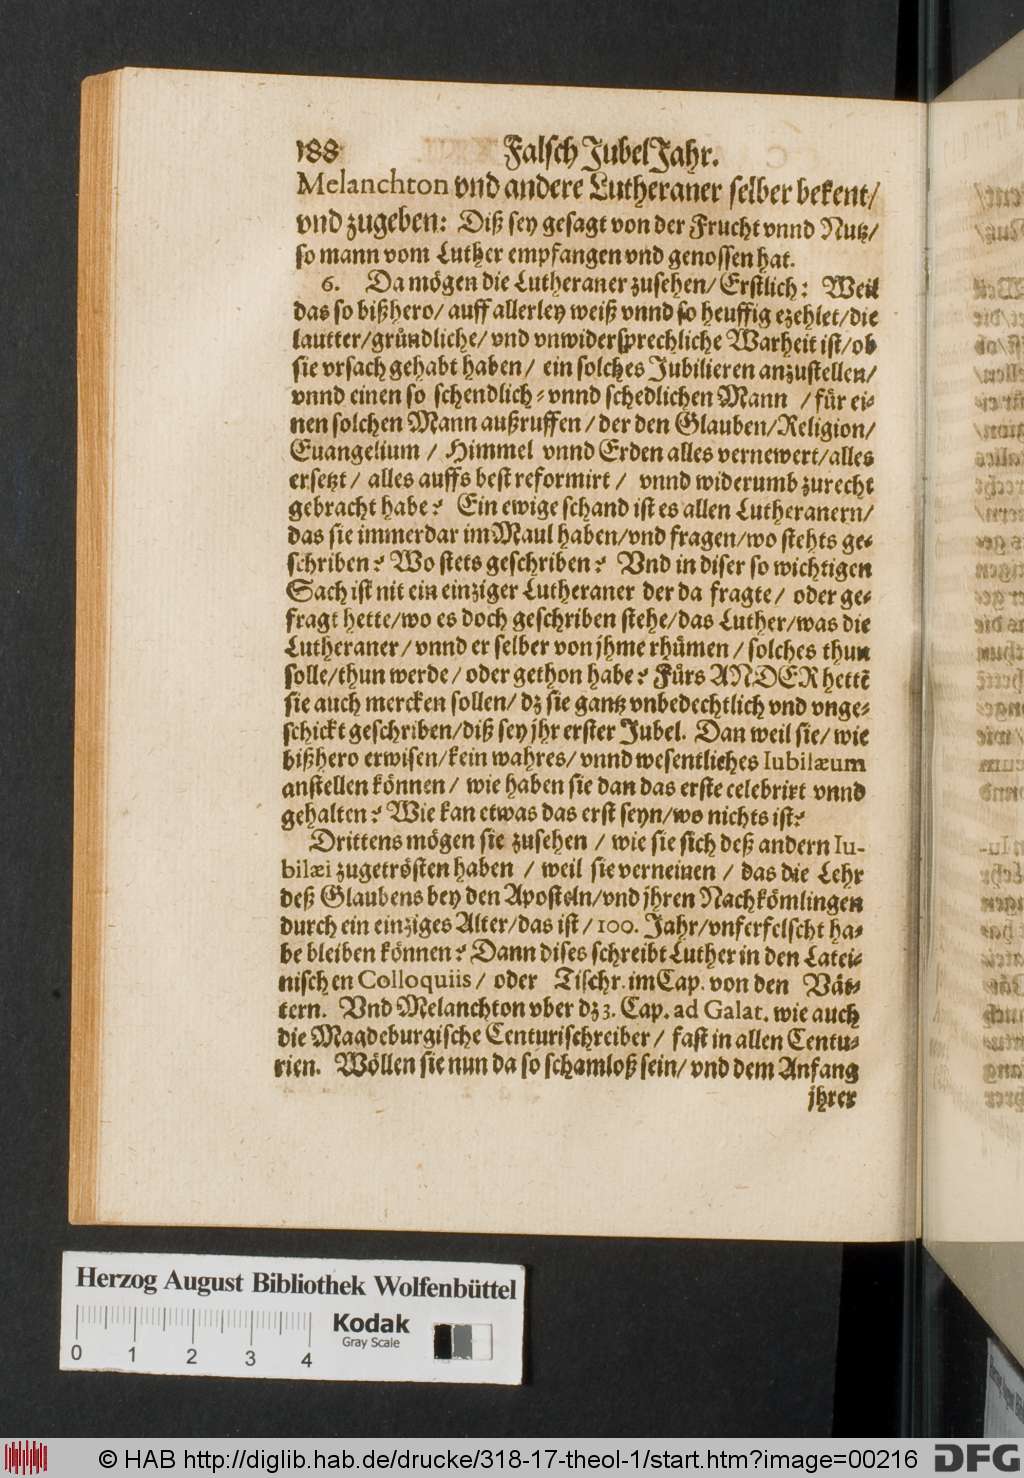 188 Falsch JubelJahr.
Melanchton vnd andere Lutheraner selber bekent/
vnd zugeben: Diß sey gesagt von der Frucht vnnd Nutz/
so mann vom Luther empfangen vnd genossen hat.
6. Da mögen die Lutheraner zusehen/ Erstlich: Weil
das so bißhero/ auff allerley weiß vnnd so heuffig ezehlet/ die
lautter/ gründliche/ vnd vnwidersprechliche Warheit ist/ ob
sie vrsach gehabt haben/ ein solches Jubilieren anzustellen/
vnnd einen so schendlich- vnnd schedlichen Mann / für ei-
nen solchen Mann außruffen/ der den Glauben/ Religion/
Euangelium / Himmel vnnd Erden alles vernewert/ alles
ersetzt/ alles auffs best reformirt / vnnd widerumb zurecht
gebracht habe? Ein ewige schand ist es allen Lutheranern/
das sie immerdar im Maul haben/ vnd fragen/ wo stehts ge-
schriben? Wo stets geschriben? Vnd in diser so wichtigen
Sach ist nit ein einziger Lutheraner der da fragte/ oder ge-
fragt hette/ wo es doch geschriben stehe/ das Luther/ was die
Lutheraner/ vnnd er selber von jhme rhümen/ solches thun
solle/ thun werde/ oder gethon habe? Fürs ANDER hettē
sie auch mercken sollen/ dz sie gantz vnbedechtlich vnd vnge-
schickt geschriben/ diß sey jhr erster Jubel. Dan weil sie/ wie
bißhero erwisen/ kein wahres/ vnnd wesentliches Iubilæum
anstellen können/ wie haben sie dan das erste celebrirt vnnd
gehalten? Wie kan etwas das erst seyn/ wo nichts ist?
Drittens mögen sie zusehen / wie sie sich deß andern Iu-
bilæi zugetrösten haben / weil sie verneinen / das die Lehr
deß Glaubens bey den Aposteln/ vnd jhren Nachkömlingen
durch ein einziges Alter/ das ist/ 100. Jahr/ vnferfelscht ha-
be bleiben können? Dann dises schreibt Luther in den Latei-
nischen Colloquiis/ oder Tischr. im Cap. von den Vät-
tern. Vnd Melanchton vber dz 3. Cap. ad Galat. wie auch
die Magdeburgische Centurischreiber/ fast in allen Centu-
rien. Wöllen sie nun da so schamloß sein/ vnd dem Anfang
jhrer
Herzog August Bibliothek Wolfenbüttel
Kodak
Gray Scale
0 1 2 3 4
© HAB http://diglib.hab.de/drucke/318-17-theol-1/start.htm?image=00216 DFG